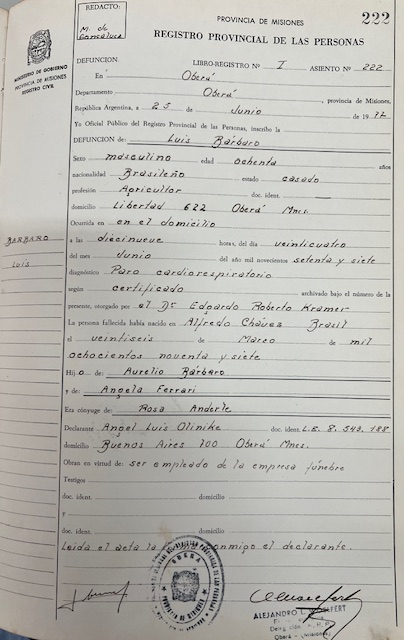 REDACTO:
M. de
PROVINCIA DE MISIONES
222
REGISTRO PROVINCIAL DE LAS PERSONAS
MINISTERIO DE GOBIERNO
PROVINCIA DE MISIONES
REGISTRO CIVIL
DEFUNCION.
LIBRO-REGISTRO Nº I ASIENTO Nº 222
En Oberá
Departamento Oberá, provincia de Misiones,
República Argentina, a 25 de Junio de 1977
Yo Oficial Público del Registro Provincial de las Personas, inscribo la
DEFUNCION de: Luis Bárbaro
Sexo masculino edad ochenta años
nacionalidad Brasileño estado casado
profesión Agricultor doc. ident.
domicilio Libertad 622 Oberá Mnes.
Ocurrida en en el domicilio
BARBARO
LUIS
a las diecinueve horas, del día veinticuatro
del mes Junio del año mil novecientos setenta y siete
diagnóstico Paro cardiorespiratorio
según certificado archivado bajo el número de la
presente, otorgado por el Dr Edgardo Roberto Kramer
La persona fallecida había nacido en Alfredo Cháves Brasil
el veintiseis de Marzo de mil
ochocientos noventa y siete
Hij o de: Aurelio Bárbaro
y de: Angela Ferrari
Era cónyuge de: Rosa Anderle
Declarante Angel Luis Olinike doc. ident. L.E. 8.549.188
domicilio Buenos Aires 200 Oberá Mnes.
Obran en virtud de: ser empleado de la empresa fúnebre
Testigos
doc. ident. domicilio
y
doc. ident. domicilio
Leída el acta la conmigo el declarante.
OBERA
ALEJANDRO